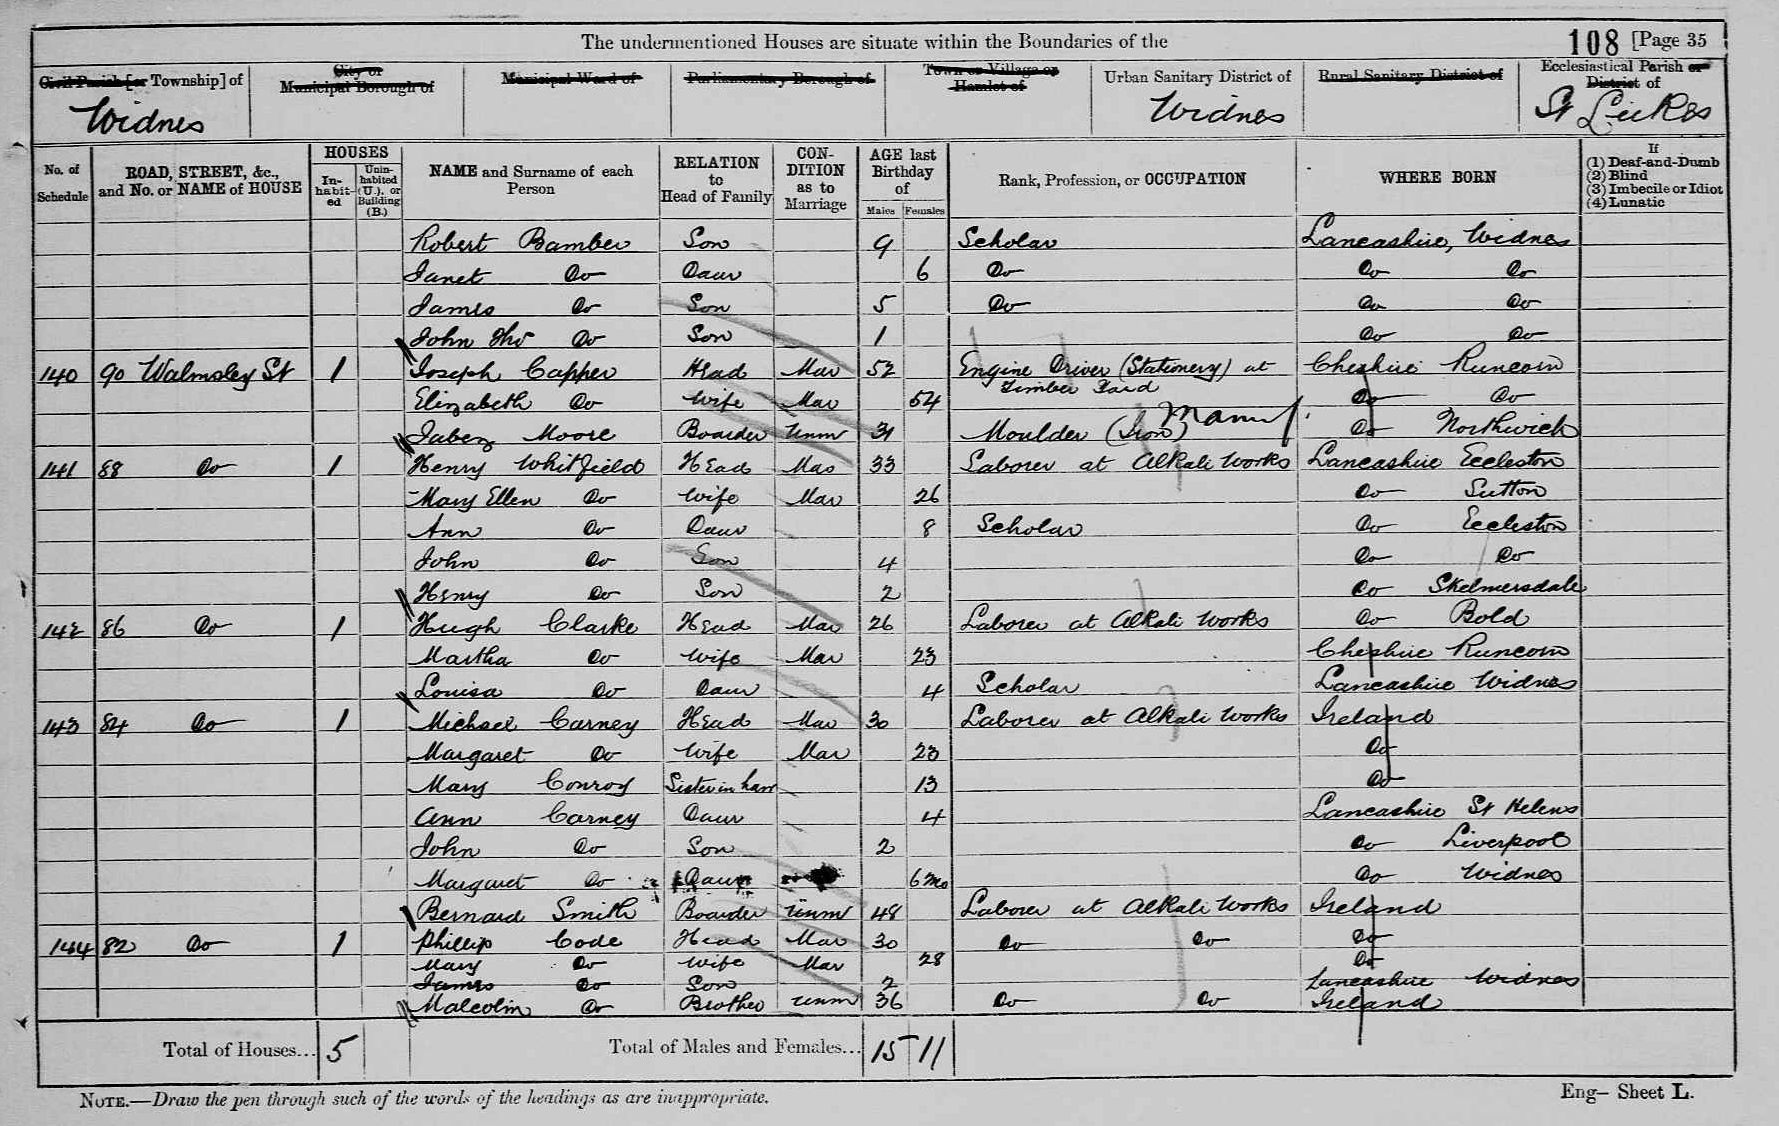 The undermentioned Houses are situate within the Boundaries of the
108 [Page 35
Civil Parish [or Township] of
City or Municipal Borough of
Municipal Ward of
Parliamentary Borough of
Town or Village or Hamlet of
Urban Sanitary District of
Rural Sanitary District of
Ecclesiastical Parish or District of
Widnes
Widnes
St Lukes
No. of Schedule
ROAD, STREET, &c., and No. or NAME of HOUSE
HOUSES
In-habit-ed
Unin-habited (U.), or Building (B.)
NAME and Surname of each Person
RELATION to Head of Family
CON-DITION as to Marriage
AGE last Birthday of
Males
Females
Rank, Profession, or OCCUPATION
WHERE BORN
If
(1) Deaf-and-Dumb
(2) Blind
(3) Imbecile or Idiot
(4) Lunatic
Robert Bamber Son 9 Scholar Lancashire, Widnes
Janet Do Daur 6 Do Do Do
James Do Son 5 Do Do Do
John Tho Do Son 1 Do Do
140 90 Walmsley St 1 Joseph Capper Head Mar 52 Engine Driver (Stationery) at Timber Yard Cheshire Runcorn
Elizabeth Do Wife Mar 54 Do Do
Jabez Moore Boarder Unm 31 Moulder (Iron) Manuf Do Northwich
141 88 Do 1 Henry Whitfield Head Mar 33 Laborer at Alkali Works Lancashire Eccleston
Mary Ellen Do Wife Mar 26 Do Sutton
Ann Do Daur 8 Scholar Do Eccleston
John Do Son 4 Do Do
Henry Do Son 2 Do Skelmersdale
142 86 Do 1 Hugh Clarke Head Mar 26 Laborer at Alkali Works Do Bold
Martha Do Wife Mar 23 Cheshire Runcorn
Louisa Do Daur 4 Scholar Lancashire Widnes
143 84 Do 1 Michael Carney Head Mar 30 Laborer at Alkali Works Ireland
Margaret Do Wife Mar 23 Do
Mary Conroy Sister in Law 13 Do
Ann Carney Daur 4 Lancashire St Helens
John Do Son 2 Do Liverpool
Margaret Do Daur 6 Mo Do Widnes
Bernard Smith Boarder Unm 48 Laborer at Alkali Works Ireland
144 82 Do 1 Phillip Code Head Mar 30 Do Do Do
Mary Do Wife Mar 28 Do
James Do Son 2 Lancashire Widnes
Malcolm Do Brother Unm 36 Do Do Ireland
Total of Houses... 5
Total of Males and Females... 15 11
NOTE.—Draw the pen through such of the words of the headings as are inappropriate.
Eng– Sheet L.